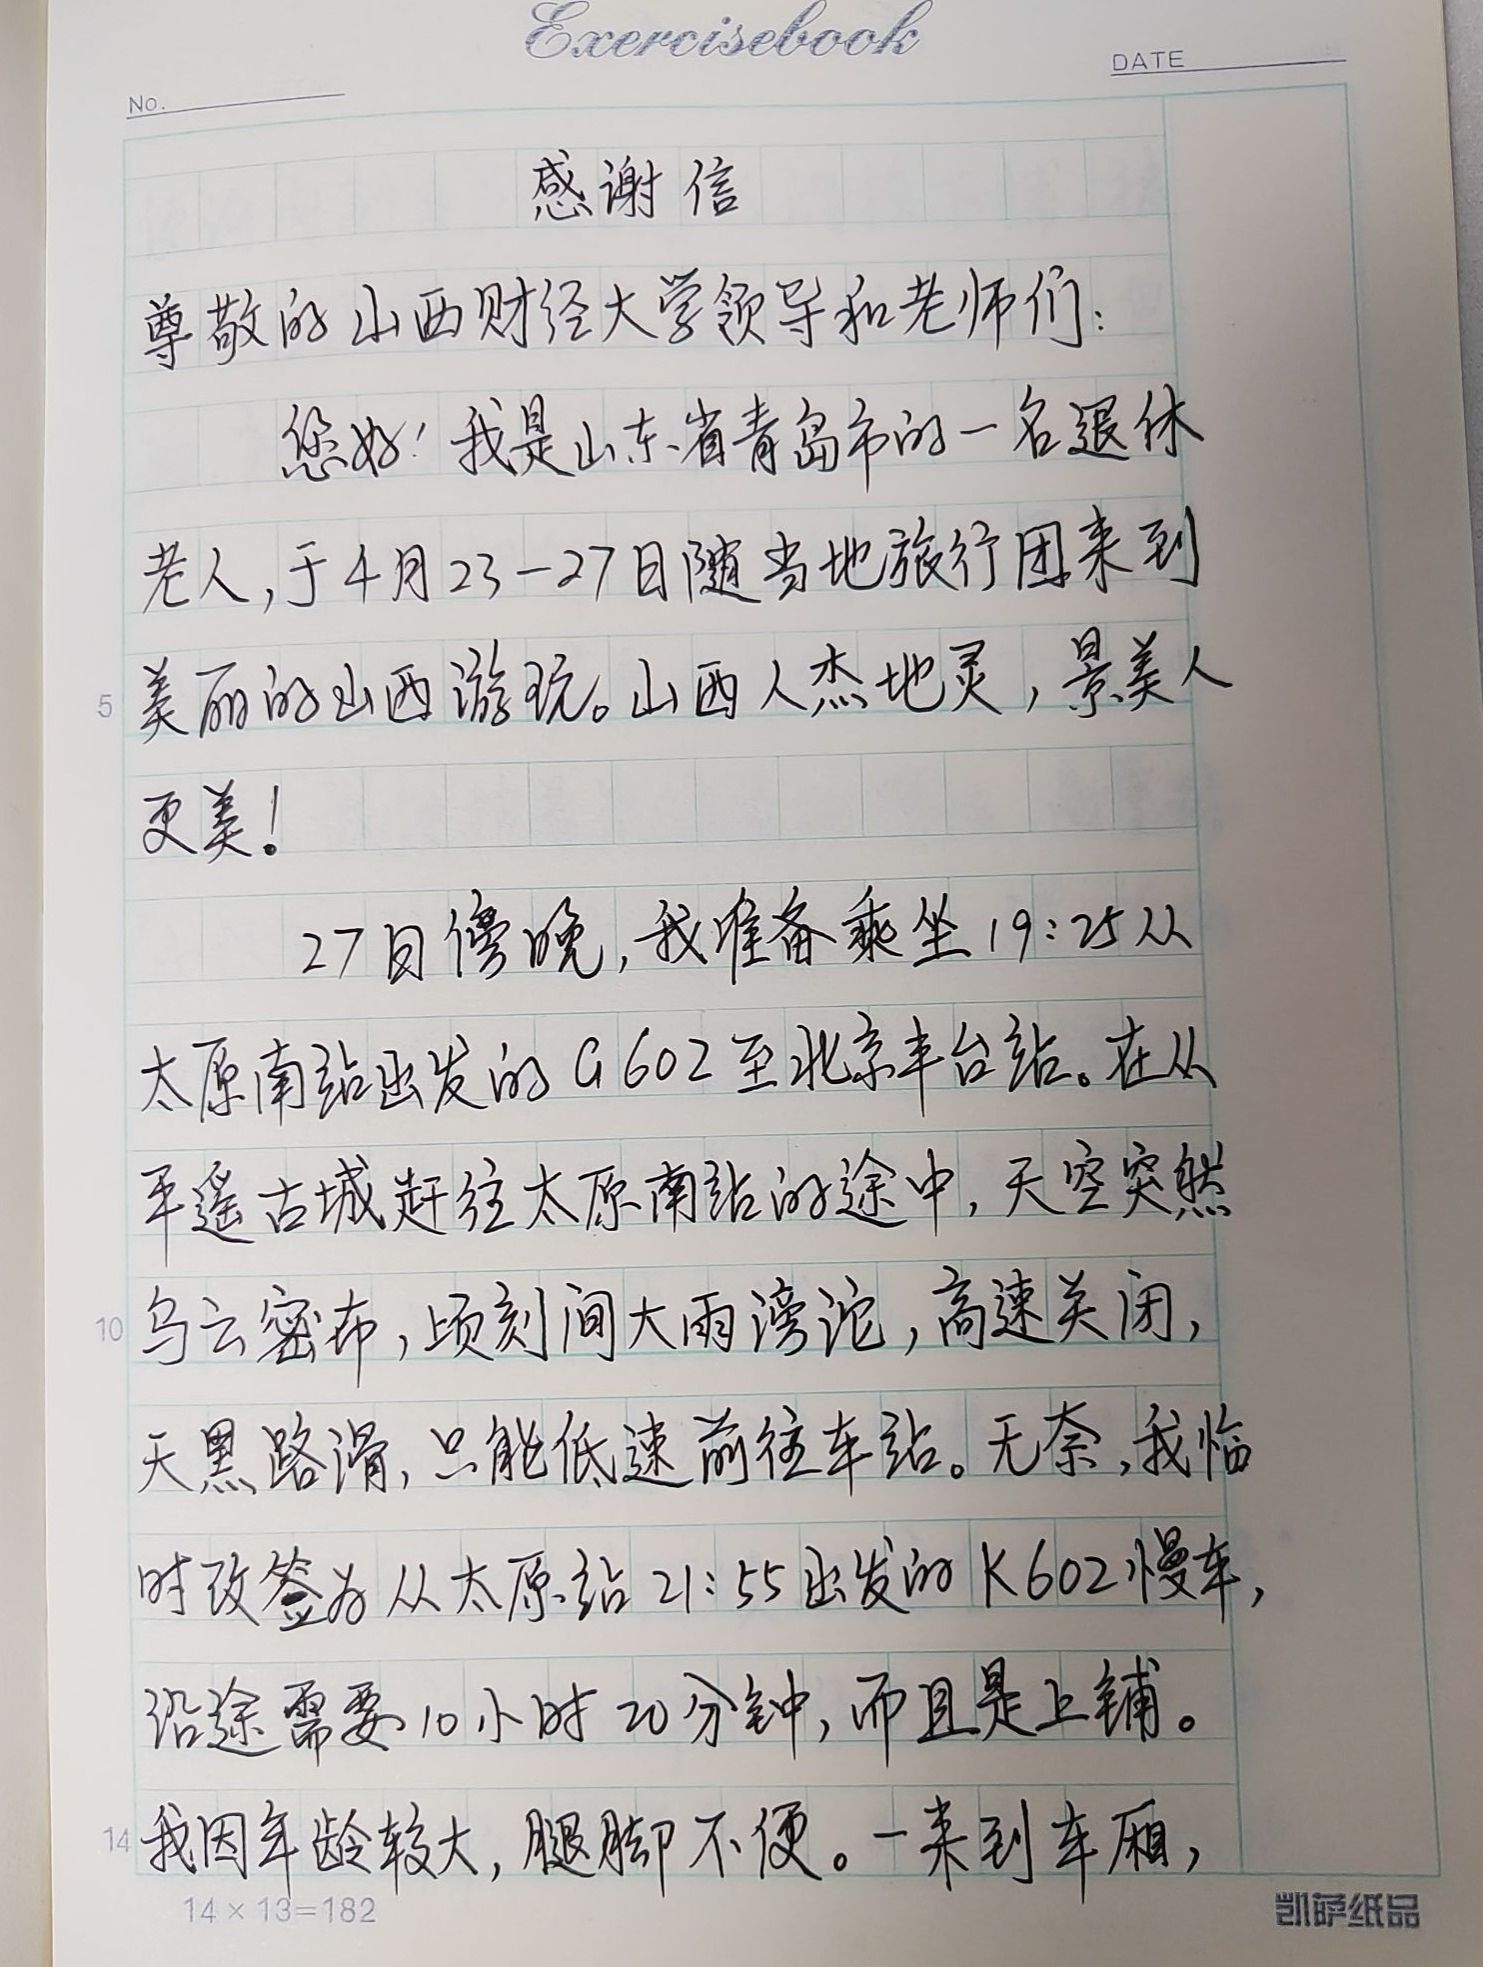 Exercisebook
No.
DATE
感谢信
尊敬的山西财经大学领导和老师们：
您好！我是山东省青岛市的一名退休
老人，于4月23-27日随当地旅行团来到
5 美丽的山西游玩。山西人杰地灵，景美人
更美！
27日傍晚，我准备乘坐19:25从
太原南站出发的G602至北京丰台站。在从
平遥古城赶往太原南站的途中，天空突然
10 乌云密布，顷刻间大雨滂沱，高速关闭，
天黑路滑，只能低速前往车站。无奈，我临
时改签为从太原站21:55出发的K602慢车，
沿途需要10小时20分钟，而且是上铺。
14 我因年龄较大，腿脚不便。一来到车厢，
14×13=182
凯萨纸品